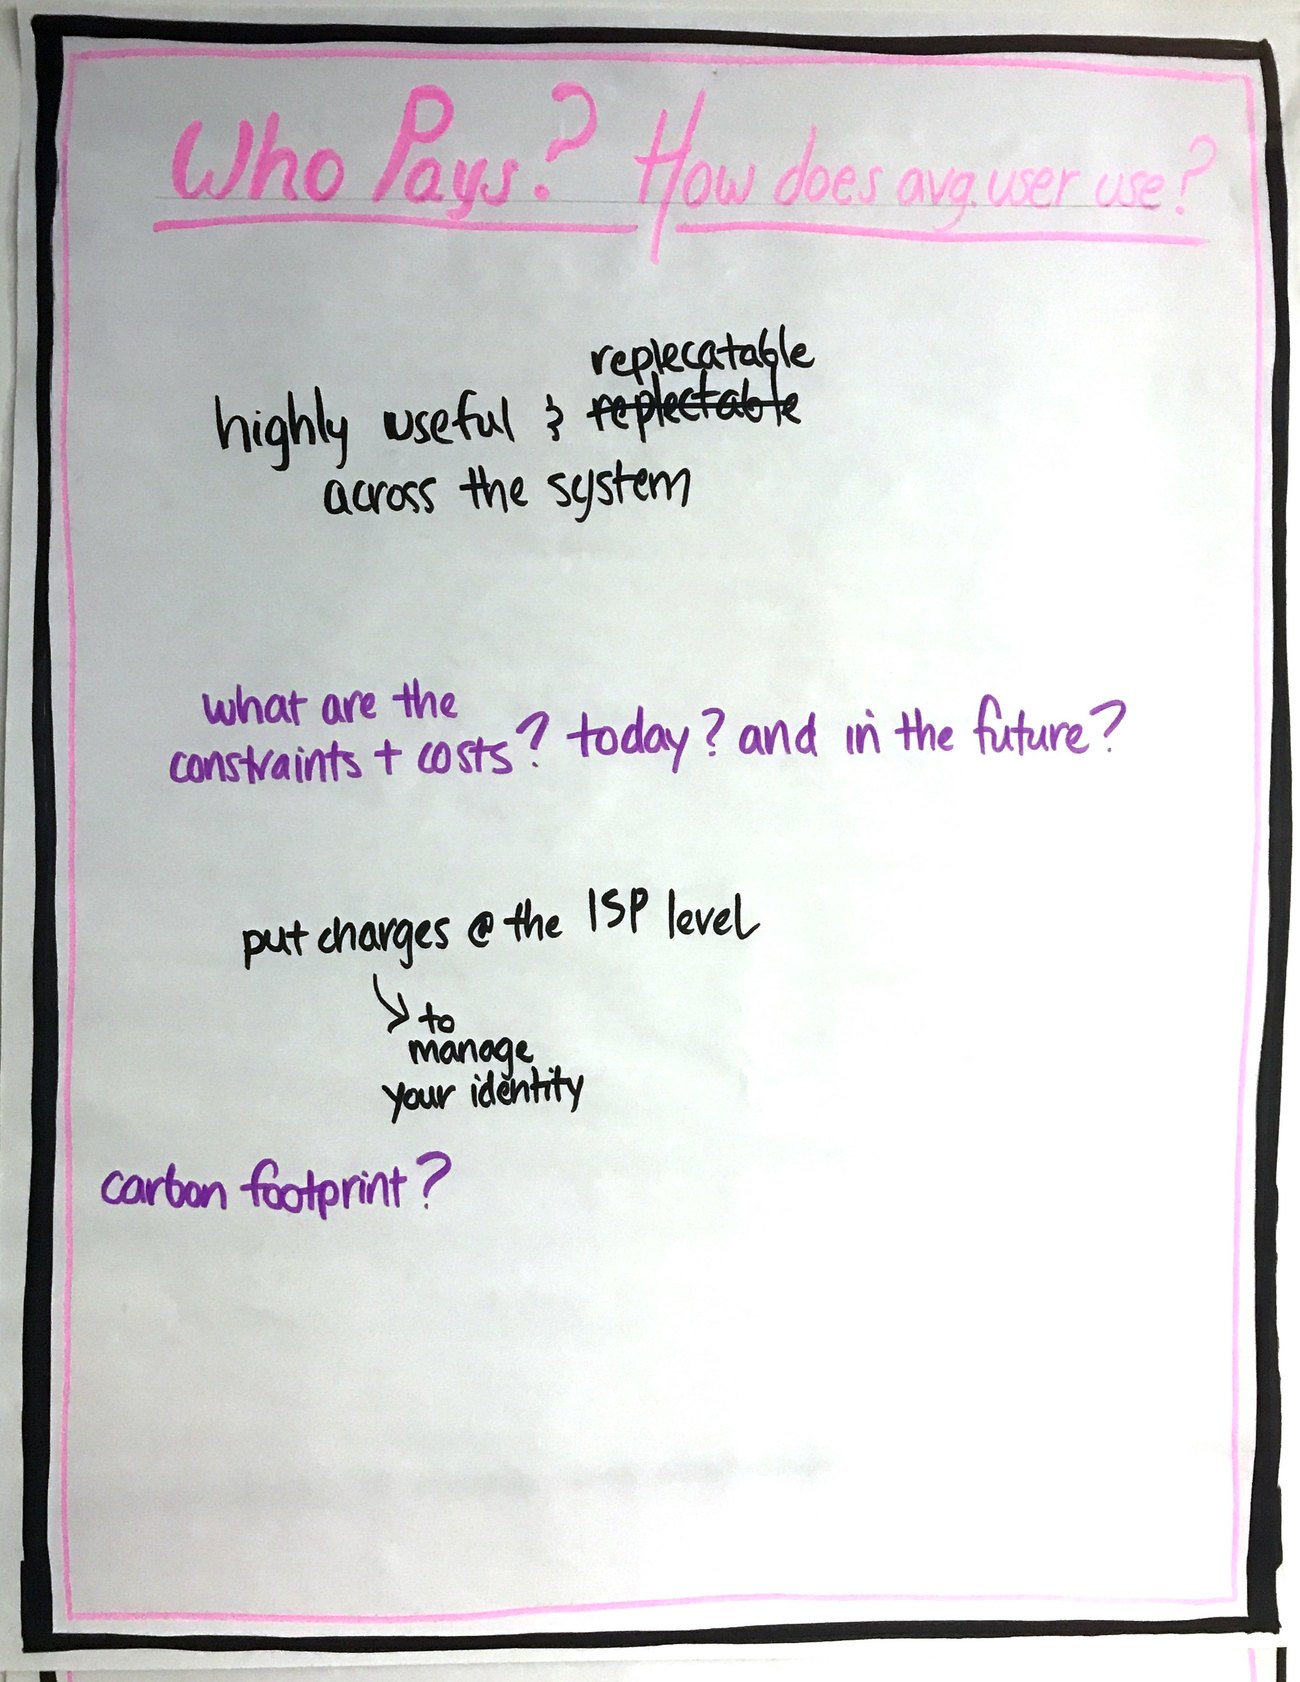 Who Pays? How does avg. user use?
replecatable
highly useful & replectable
across the system
what are the
constraints + costs? today? and in the future?
put charges @ the ISP level
to
manage
your identity
carbon footprint?